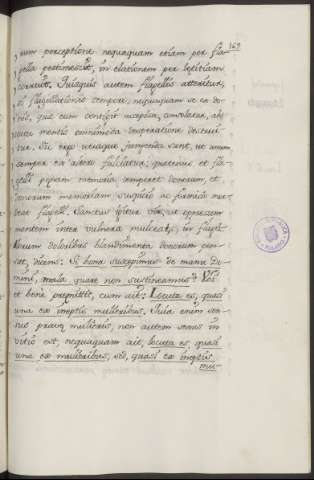 num perceptione nequaquam etiam per fla- 162
gella pertimescit, in elationem per lætitiam
corruit. Quisquis autem flagellis atteritur,
si flagellationis tempore, nequaquam se ex do-
nis, quæ eum contigit accepisse, consolatur, ab
mentis omnimoda desperatione destrui-
tur. Sic ergo utraque jungenda sunt, ut unum
semper ex altero fulciatur; quatenus et fla-
gelli pœnam memoria temperet donorum, et
donorum memoriam suspicio ac formido mor-
deat flagelli. Sanctus igitur vir, ut oppressam
mentem inter vulnera mulceat, in flagel-
lorum doloribus blandimenta donorum pen-
sat, dicens: Si bona suscepimus de manu Do-
mini, mala quare non sustineamus? Ubi
et bene præmittit, cum ait: Locuta es, quasi
una ex ineptis mulieribus. Quia enim sen-
sus pravæ mulieris, non autem sexus in
vitio est, nequaquam ait, locuta es, quasi
una ex mulieribus, sed, quasi ex ineptis
mu-